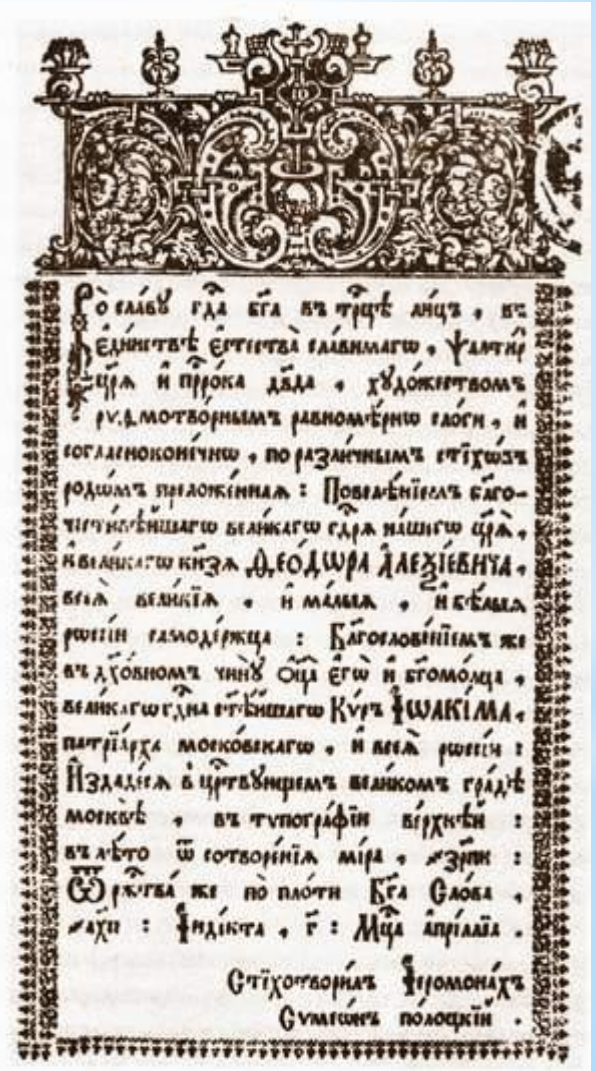 Во славу гд҃а бг҃а въ трⷪ҇цѣ лицъ , въ
є҆ди́нствѣ є҆стества̀ сла́вимагѡ , Ѱалти́р
цр҃ѧ̀ и҆ прⷪ҇ро́ка дв҃да , худо́жествомъ
равномѣ́рнѡ сло́ги , и҆
согласноконе́чнѡ , по разли́чнымъ стїхѡ́въ
родѡ́мъ преложе́ннаѧ : Повелѣ́нїемъ бл҃го-
чести́вѣйшагѡ вели́кагѡ гдⷭ҇рѧ на́шегѡ цр҃ѧ̀ ,
и҆ вели́кагѡ кн҃зѧ ѲЕО́ДѠРА А҆ЛЕѮІ́ЕВИЧА ,
всеѧ̀ вели́кїѧ , и҆ ма́лыѧ , и҆ бѣ́лыѧ
рѡссі́и самоде́ржца : Бл҃гослове́нїемъ же
въ дх҃о́вномъ чи́нꙋ Ѻ҆ц҃а̀ є҆гѡ̀ и҆ бг҃омо́лца ,
вели́кагѡ гдⷭ҇на ст҃ѣ́йшагѡ Кѵ́ръ І҆ѠАКІ́МА ,
патрїа́рха моско́вскагѡ , и҆ всеѧ̀ рѡссі́и :
И҆здаде́сѧ в̾ црⷭ҇твꙋющемъ вели́комъ гра́дѣ
москвѣ̀ , въ тѵпогра́фїи ве́рхнѣй :
въ лѣ́то ѿ сотворе́нїѧ мі́ра , ҂зрпи :
Ѿ ржⷭ҇тва́ же по пло́ти Бг҃а Сло́ва ,
҂ахп : І҆нді́кта , г҃ : Мцⷭ҇а а҆прі́ллїа
Стїхотвори́лъ І҆еромона́хъ
Сѵмеѡ́нъ по́лоцкїй .